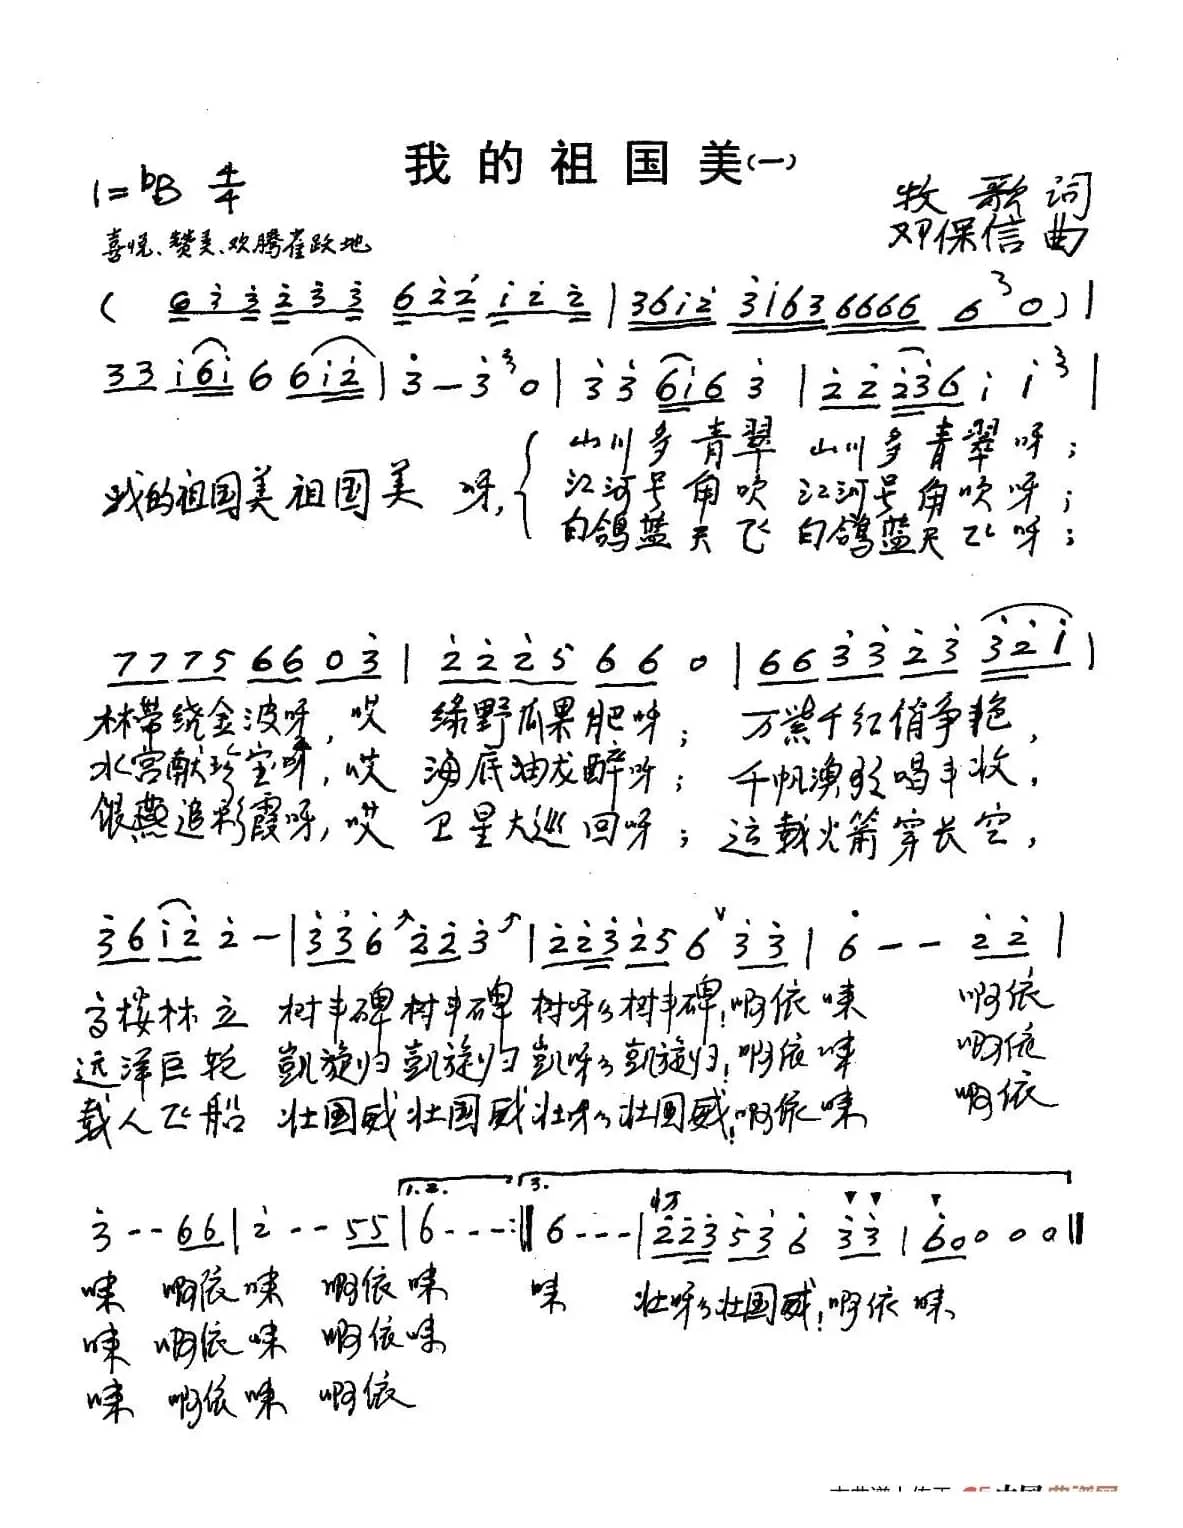 我的祖国美(一)
1=♭B 4/4
牧歌 词
邓保信 曲
喜悦、赞美、欢腾雀跃地
( 6 3 3 2 3 3 6 2 2 1 2 2 | 3 6 1 2 3 1 6 3 6 6 6 6 6 3 0 ) |
3 3 1 6 1 6 6 1 2 | 3 - 3 3 0 | 3 3 6 1 6 3 | 2 2 2 3 6 1 1 3 |
山川多青翠 山川多青翠呀；
我的祖国美祖国美 呀, 江河号角吹 江河号角吹呀；
白鸽蓝天飞 白鸽蓝天飞呀；
7 7 7 5 6 6 0 3 | 2 2 2 5 6 6 0 | 6 6 3 3 2 3 3 2 1 |
林带绕金波呀, 哎 绿野瓜果肥呀； 万紫千红俏争艳,
水宫献珍宝呀, 哎 海底油龙醉呀； 千帆渔歌唱丰收,
银燕追彩霞呀, 哎 卫星大巡回呀； 运载火箭穿长空,
3 6 1 2 2 - | 3 3 6 2 2 3 | 2 2 3 2 5 6 ∨ 3 3 | 6 - - 2 2 |
高楼林立 树丰碑树丰碑 树呀么树丰碑！啊依唻 啊依
远洋巨轮 凯旋归凯旋归凯呀么凯旋归！啊依唻 啊依
载人飞船 壮国威壮国威壮呀么壮国威！啊依唻 啊依
1.2. 3.
3 - - 6 6 | 2 - - 5 5 | 6 - - - :‖ 6 - - - | 2 2 3 5 3 6 3 3 | 6 0 0 0 0 ‖
唻 啊依唻 啊依唻 唻 壮呀么壮国威！啊依唻
唻 啊依唻 啊依唻
唻 啊依唻 啊依